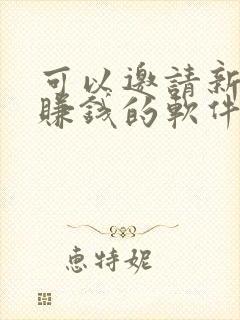 可以邀請新
賺錢的軟件
惠特妮